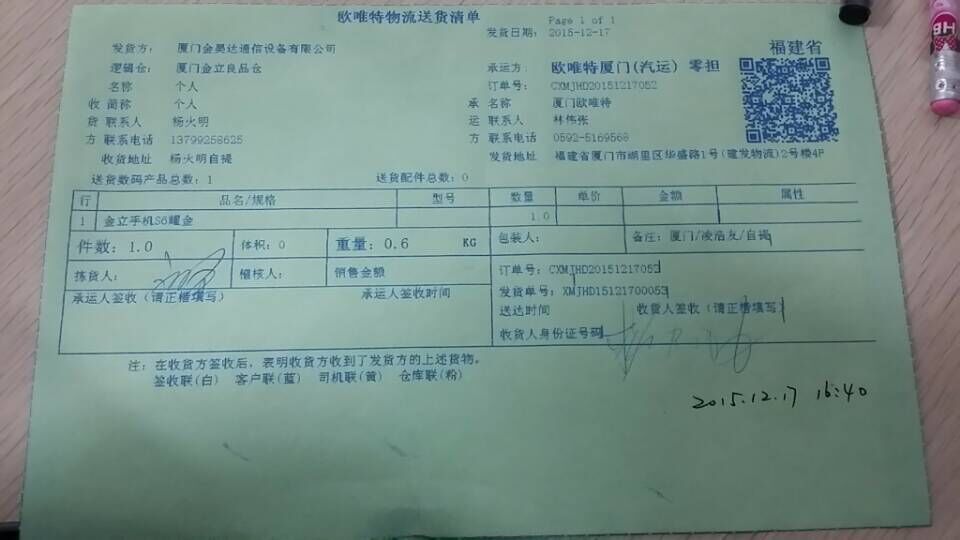 欧唯特物流送货清单
Page 1 of 1
发货日期: 2015-12-17
发货方: 厦门金昊达通信设备有限公司
福建省
逻辑仓: 厦门金立良品仓
承运方: 欧唯特厦门(汽运) 零担
名称 个人
订单号: CXMJHD20151217052
收 简称 个人
承 名称 厦门欧唯特
货 联系人 杨火明
运 联系人 林伟张
方 联系电话 13799258625
方 联系电话 0592-5169568
收货地址 杨火明自提
发货地址 福建省厦门市湖里区华盛路1号(建发物流)2号楼4F
送货数码产品总数: 1
送货配件总数: 0
行 品名/规格 型号 数量 单价 金额 属性
1 金立手机S6耀金 1.0
件数: 1.0 体积: 0 重量: 0.6 KG 包装人: 备注: 厦门/凌浩友/自提
拣货人: 稽核人: 销售金额 订单号: CXMJHD20151217052
承运人签收(请正楷填写) 承运人签收时间 发货单号: XMJHD15121700053
送达时间 收货人签收(请正楷填写)
收货人身份证号码
注: 在收货方签收后, 表明收货方收到了发货方的上述货物。
签收联(白) 客户联(蓝) 司机联(黄) 仓库联(粉)
2015.12.17 16:40
HB